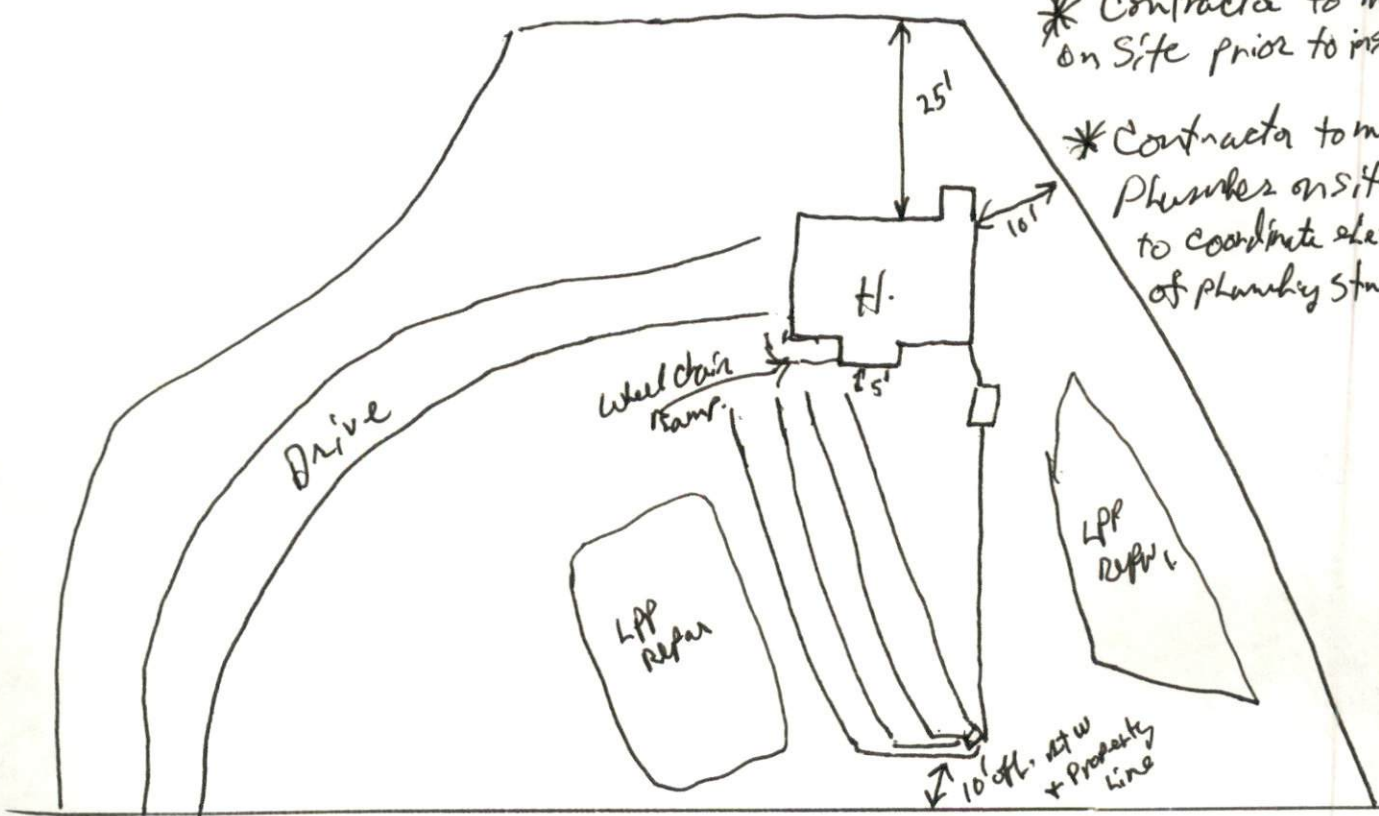 * Contractor to m
on Site prior to ins
25'
* Contractor to m
Plumber on sit
10'
to coordinate ele
of plumbing stu
H.
Wheel chair
Ramp.
5'
Drive
LPP
Repair
LPP
Repair
10' off. R/W
+ Property
Line